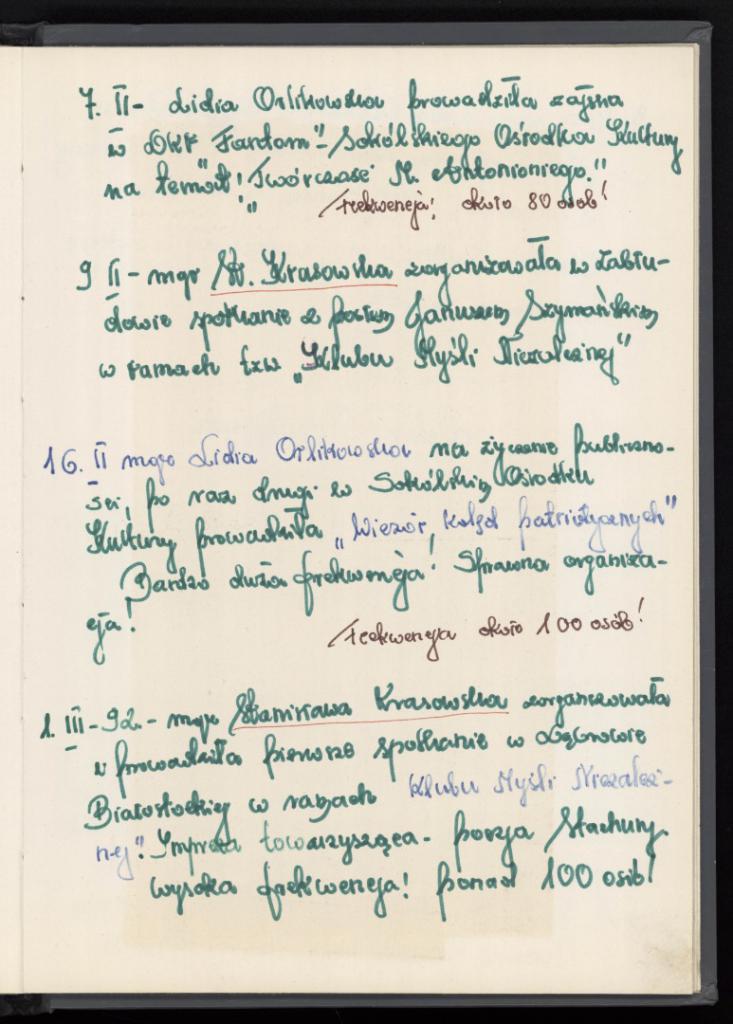 7. II - Lidia Orlikowska prowadziła zajęcia
w DKF "Fantom" - Sokólskiego Ośrodka Kultury
na temat: "Twórczość M. Antonioniego."
Frekwencja: około 80 osób!
9 II - mgr St. Krasowska zorganizowała w Zabłu-
dowie spotkanie z posłem Januszem Szymańskim
w ramach tzw „Klubu Myśli Niezależnej"
16. II mgr Lidia Orlikowska na życzenie publiczno-
ści, po raz drugi w Sokólskim Ośrodku
Kultury prowadziła „Wieczór kolęd patriotycznych"
Bardzo duża frekwencja! Sprawna organiza-
cja!
Frekwencja około 100 osób!
1. III - 92 - mgr Stanisława Krasowska zorganizowała
i prowadziła pierwsze spotkanie w Dąbrowie
Białostockiej w ramach Klubu Myśli Niezależ-
nej". Impreza towarzysząca - poezja Stachury.
wysoka frekwencja! ponad 100 osób!